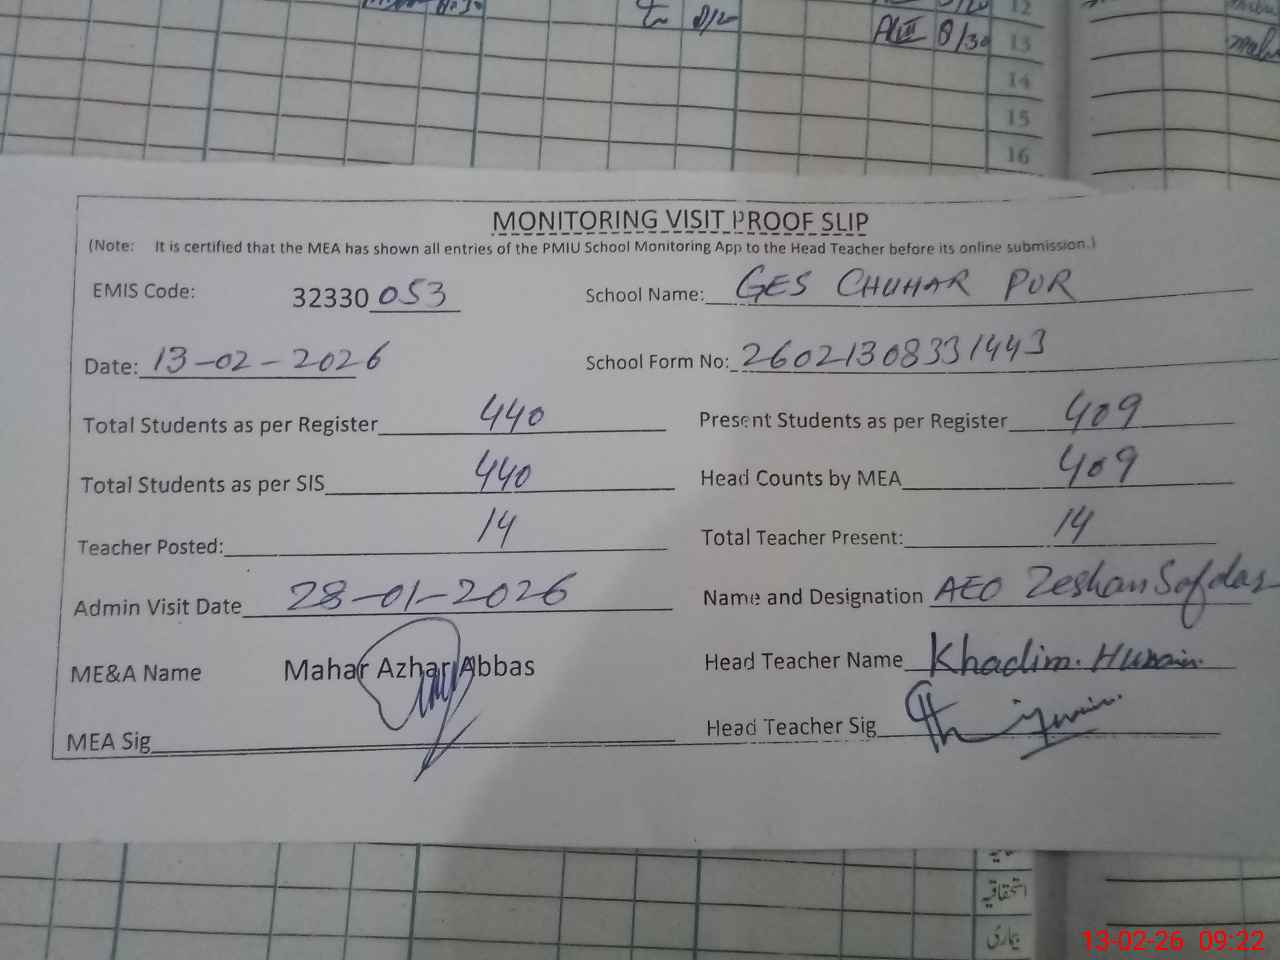 8/30
12
13
14
15
16
MONITORING VISIT PROOF SLIP
(Note: It is certified that the MEA has shown all entries of the PMIU School Monitoring App to the Head Teacher before its online submission.)
EMIS Code: 32330 053 School Name: GES CHUHAR PUR
Date: 13-02-2026 School Form No: 26021308331443
Total Students as per Register 440 Present Students as per Register 409
Total Students as per SIS 440 Head Counts by MEA 409
Teacher Posted: 14 Total Teacher Present: 14
Admin Visit Date 28-01-2026 Name and Designation AEO Zeshan Safdar
ME&A Name Mahar Azhar Abbas Head Teacher Name Khadim Hussain
MEA Sig Head Teacher Sig
اتحقاقیہ
بیماری
13-02-26 09:22